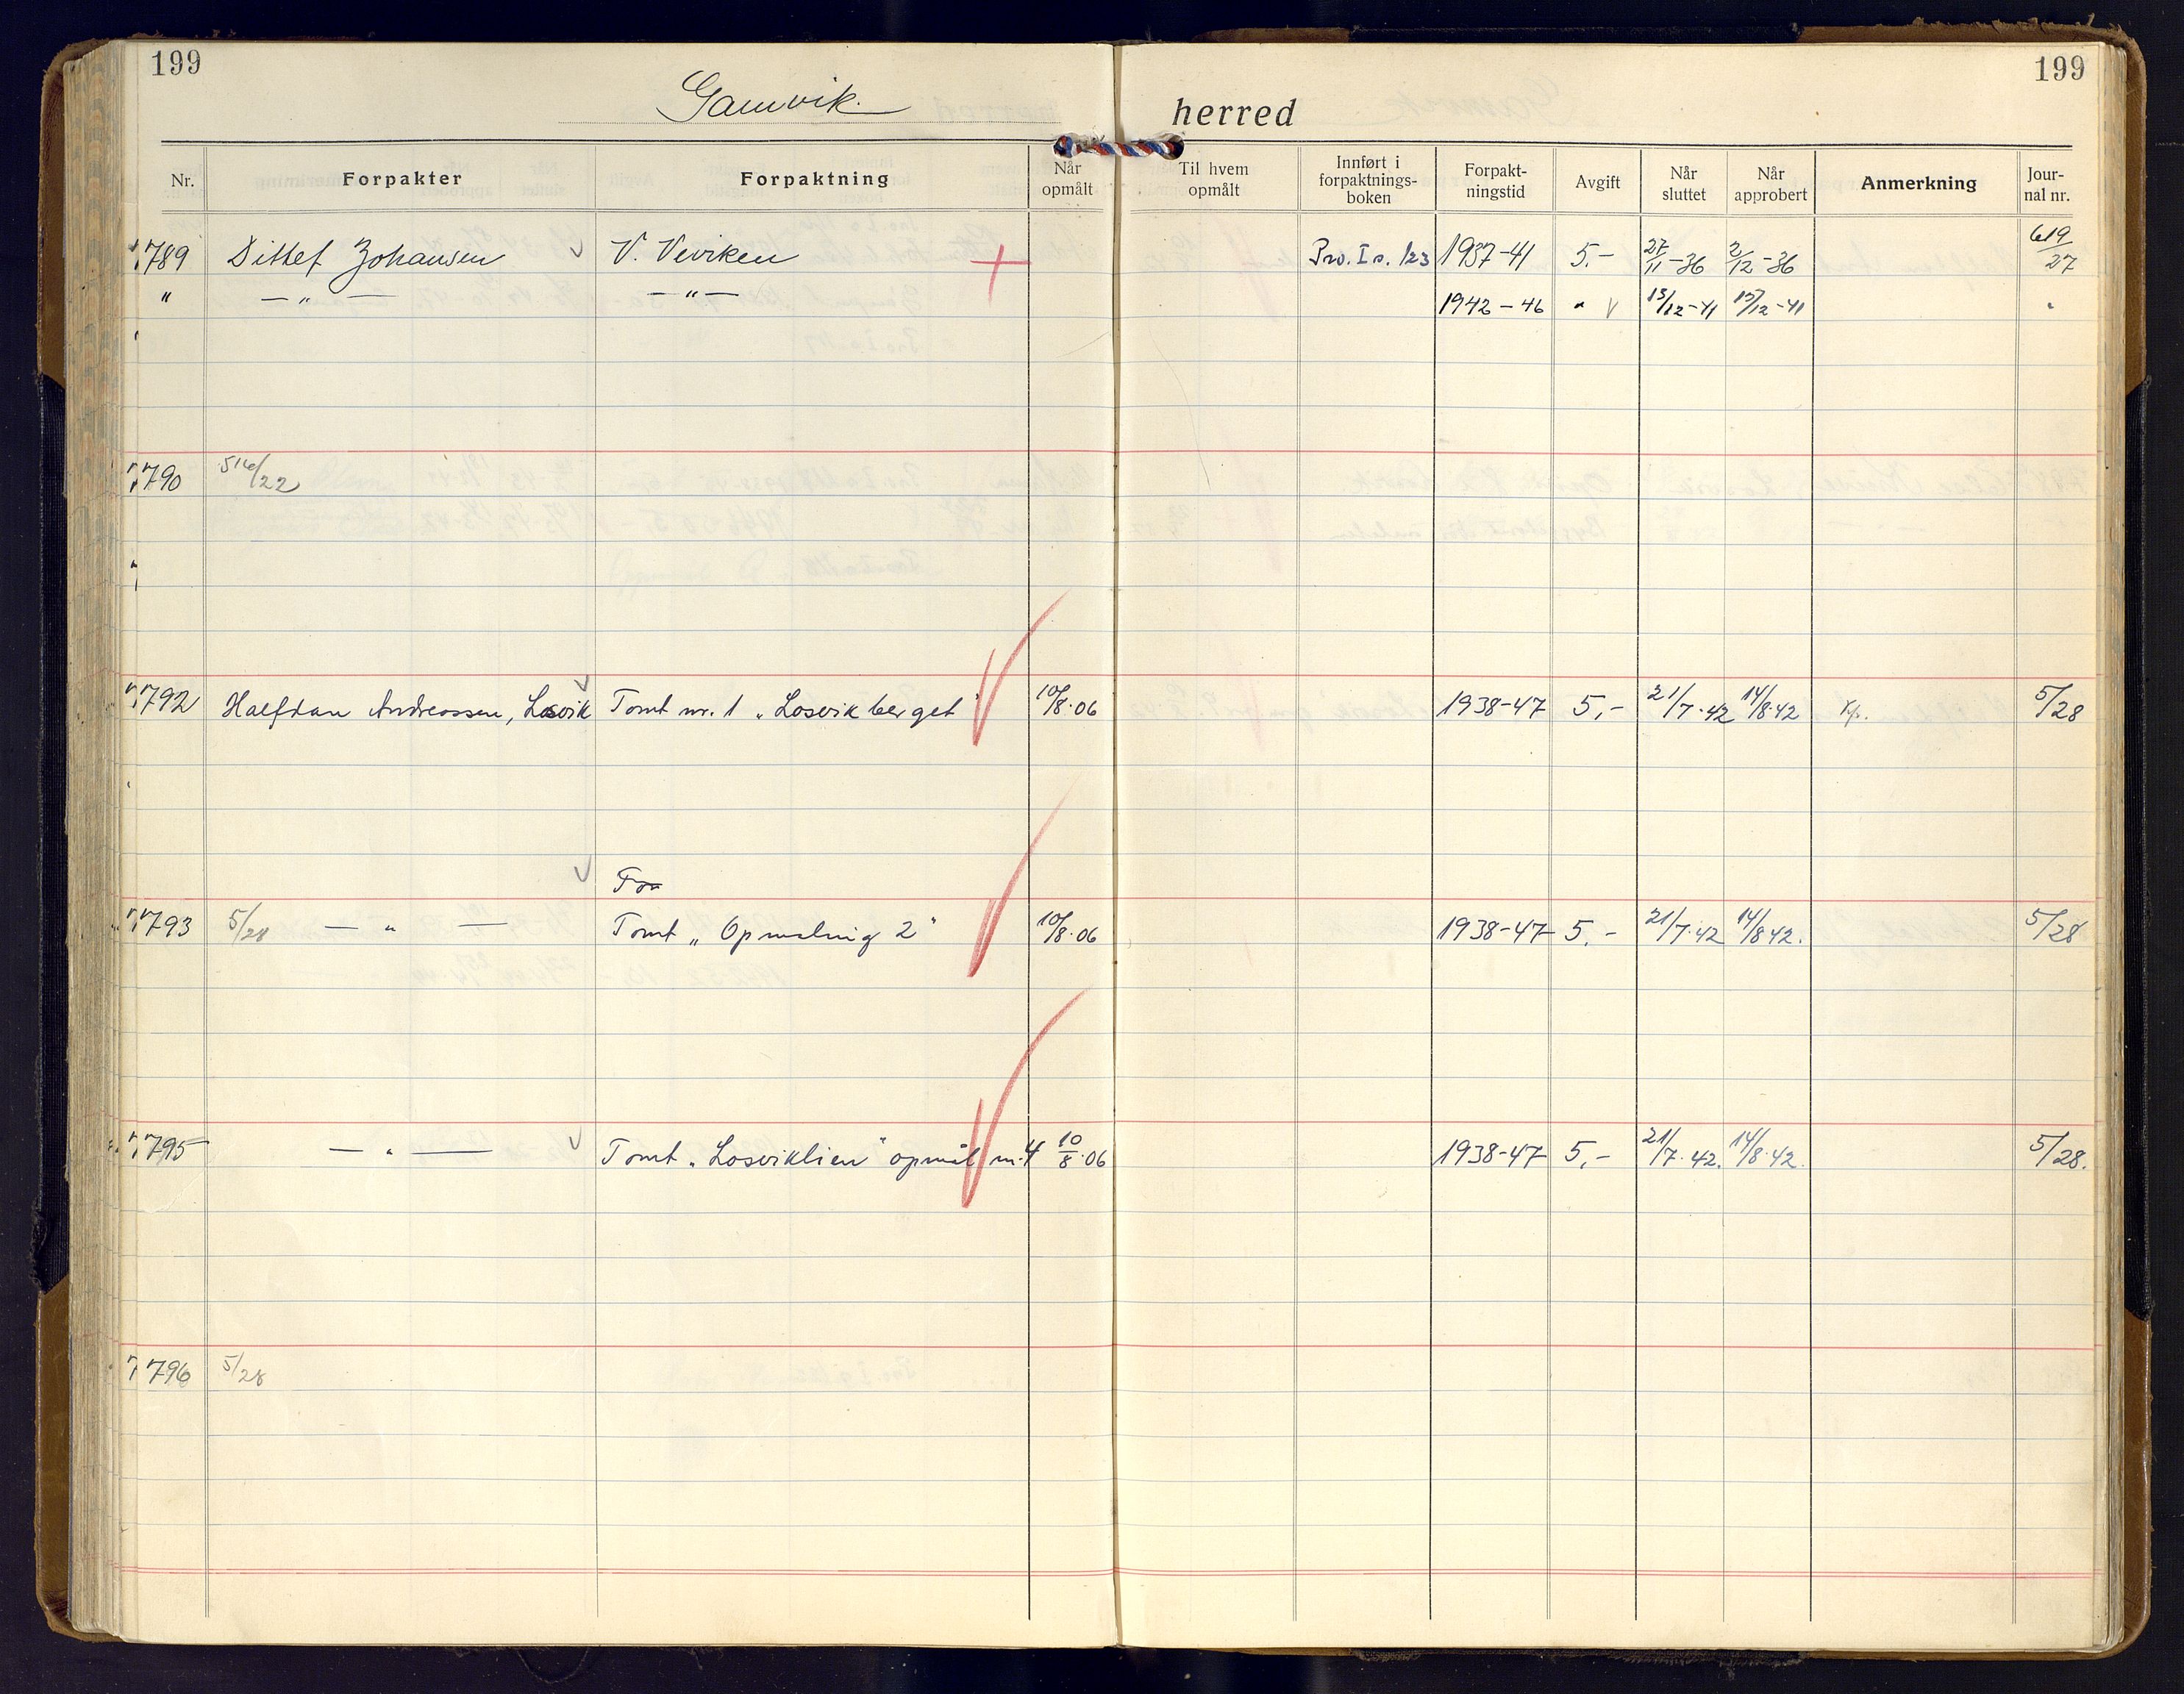 199
199
Gamvik
herred
Nr. Forpakter Forpaktning Når opmålt Til hvem opmålt Innført i forpaktnings-boken Forpakt-ningstid Avgift Når sluttet Når approbert Anmerkning Jour-nal nr.
789 Ditlef Johansen V. Veviken Pro. I s. 123 1937-41 5.- 27/11-36 2/12-36 619/27
" —"— —"— 1942-46 " 13/12-41 15/12-41 "
790 516/22
792 Halfdan Andreassen, Losvik Tomt nr. 1 „Losvikberget" 10/8.06 1938-47 5,- 21/7.42 14/8.42 Kp. 5/28
For
793 5/28 —"— Tomt „Opmåling 2" 10/8.06 1938-47 5.- 21/7.42 14/8.42. 5/28
795 —"— Tomt „Losviklien" opmål nr. 4 10/8.06 1938-47 5,- 21/7.42. 14/8.42. 5/28.
796 5/28